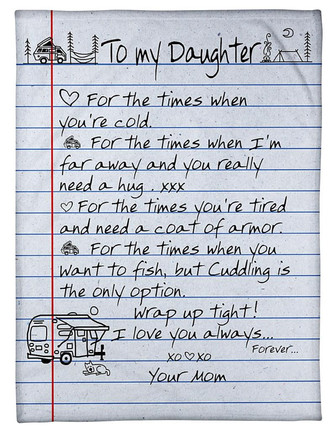 To my Daughter
For the times when
you're cold.
For the times when I'm
far away and you really
need a hug . xxx
For the times you're tired
and need a coat of armor.
For the times when you
want to fish, but Cuddling is
the only option.
Wrap up tight!
I love you always...
Forever...
xo♡xo
Your Mom